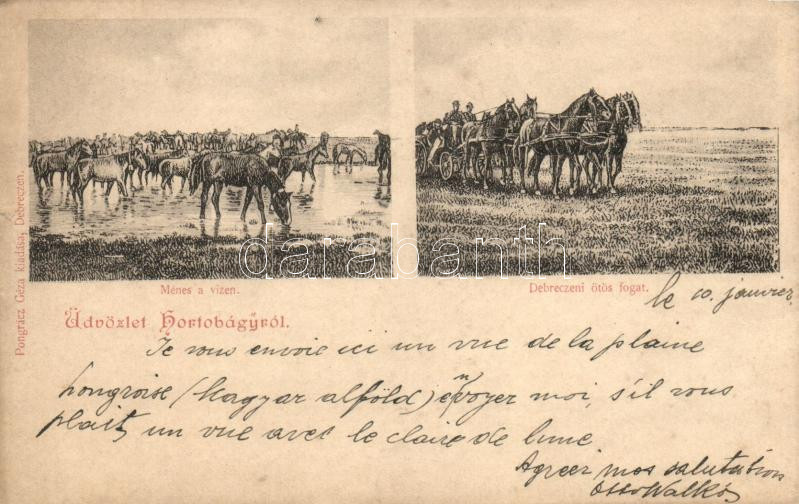 Pongrácz Géza kiadása, Debreczen.
Ménes a vizen.
Debreczeni ötös fogat.
Üdvözlet Hortobágyról.
darabanth
le 10. janvier
Je vous envoie ici un vue de la plaine
hongroise (Magyar alföld) envoyer moi, s'il vous
plait, un vue avec le claire de lune
Agréer mes salutation
Otto Walkó